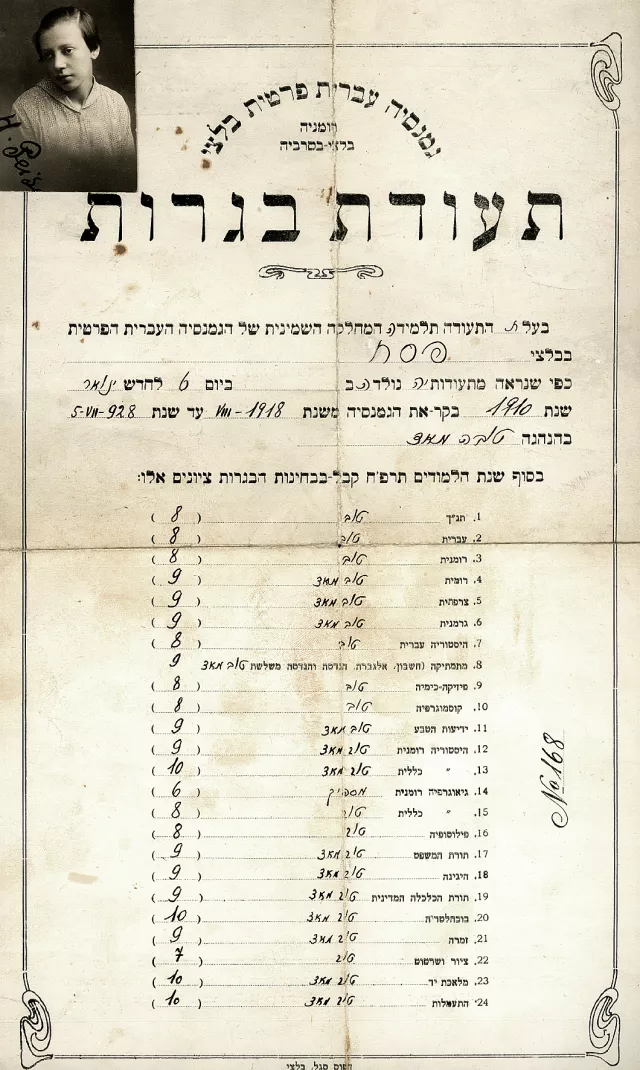 גמנסיה עברית פרטית בלצי
רומניה
בלצי-בסרביה
תעודת בגרות
בעלת התעודה תלמידה המחלקה השמינית של הגמנסיה העברית הפרטית
בבלצי פסח
כפי שנראה מתעודותיה נולדה ב ביום 6 לחדש ינואר
שנת 1910 בקר-את הגמנסיה משנת VIII-1918 עד שנת 5-VII-928
בהנהגה טובה מאד
בסוף שנת הלמודים תרפ״ח קבל-בבחינות הבגרות ציונים אלו:
1. תנ״ך טוב (8)
2. עברית טוב (8)
3. רומנית טוב (8)
4. רומית טוב מאד (9)
5. צרפתית טוב מאד (9)
6. גרמנית טוב מאד (9)
7. היסטוריה עברית טוב (8)
8. מתמתיקה (חשבון, אלגברה, הנדסה והנדסה משלשת טוב מאד 9
9. פיזיקה-כימיה טוב (8)
10. קוסמוגרפיה טוב (8)
11. ידיעות הטבע טוב מאד (9)
12. היסטוריה רומנית טוב מאד (9)
13. ״ כללית טוב מאד (10)
14. גיאוגרפיה רומנית מספיק (6)
15. ״ כללית טוב (8)
16. פילוסופיה טוב (8)
17. תורת המשפט טוב מאד (9)
18. היגינה טוב מאד (9)
19. תורת הכלכלה המדינית טוב מאד (9)
20. בוכהלטריה טוב מאד (10)
21. זמרה טוב מאד (9)
22. ציור ושרטוט טוב (7)
23. מלאכת יד טוב מאד (10)
24. התעמלות טוב מאד (10)
No 168
דפוס סגל, בלצי